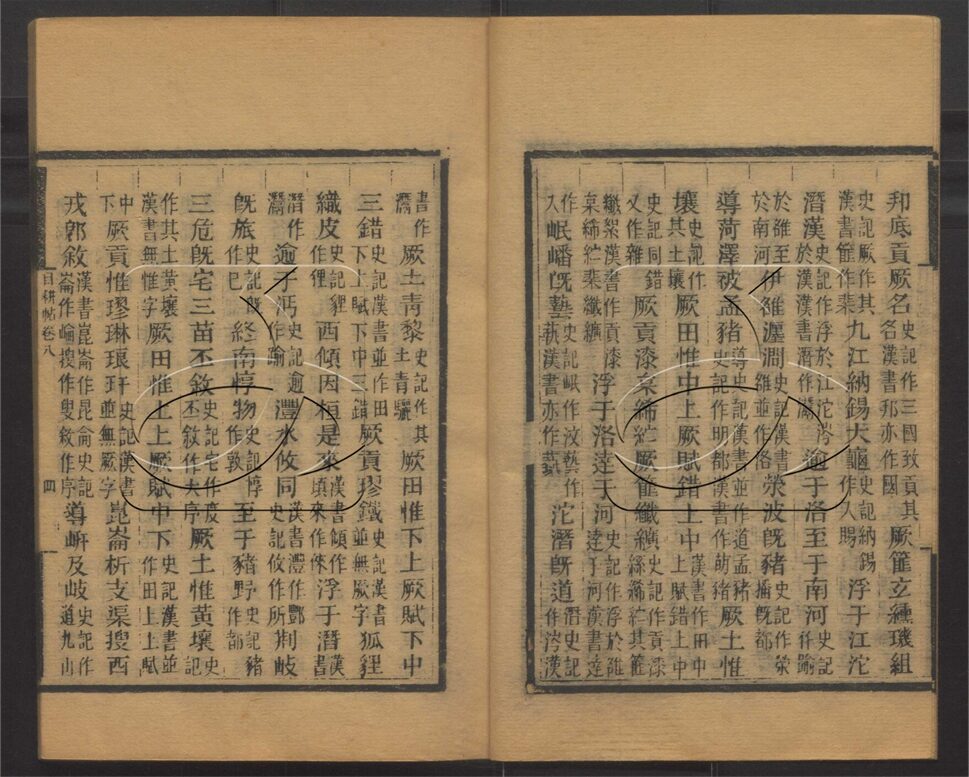 㓝底貢厥名史記作三國致貢其名漢書邦亦作國厥篚玄纁璣組
史記厥作其漢書篚作棐九江納錫大龜史記納錫作入賜浮于江沱
潛漢史記作浮於江沱涔於漢漢書潛作灊逾于洛至于南河史記作踰
於雒至於南河伊雒瀍澗史記漢書雒並作洛滎波旣豬史記作滎播旣都
導菏澤被孟豬導史記漢書並作道孟豬史記作明都漢書作萌豬厥土惟
壤史記作其土壤厥田惟中上厥賦錯上中漢書作田中上賦錯上中
史記同錯又作雜厥貢漆枲絺紵厥篚纖纊史記作貢漆絲絺紵其篚
纖絮漢書作貢漆枲絺紵棐纖纊浮于洛達于河史記作浮於雒達于河漢書達
作入岷嶓旣藝史記岷作汶藝作蓺漢書亦作蓺沱潛旣道潛史記作涔漢
書作灊厥土靑黎史記作其土靑驪厥田惟下上厥賦下中
三錯史記漢書並作田下上賦下中三錯厥貢璆鐵史記漢書並無厥字狐貍
織皮史記貍作狸西傾因桓是來漢書傾作頃來作倈浮于潛漢書
潛作灊逾于沔史記逾作踰灃水攸同漢書灃作酆史記攸作所荆岐
旣旅史記旣作已終南惇物史記惇作敦至于豬野史記豬作都
三危旣宅三苗丕敘史記宅作度丕敘作大序厥土惟黃壤史記
作其土黃壤漢書無惟字厥田惟上上厥賦中下史記漢書並作田上上賦
中下厥貢惟璆琳琅玕史記漢書並無厥字崑崙析支渠搜西
戎卽敘漢書崑崙作昆侖史記崙作崘搜作叟敘作序導岍及岐史記作道九山
目耕帖卷八
四